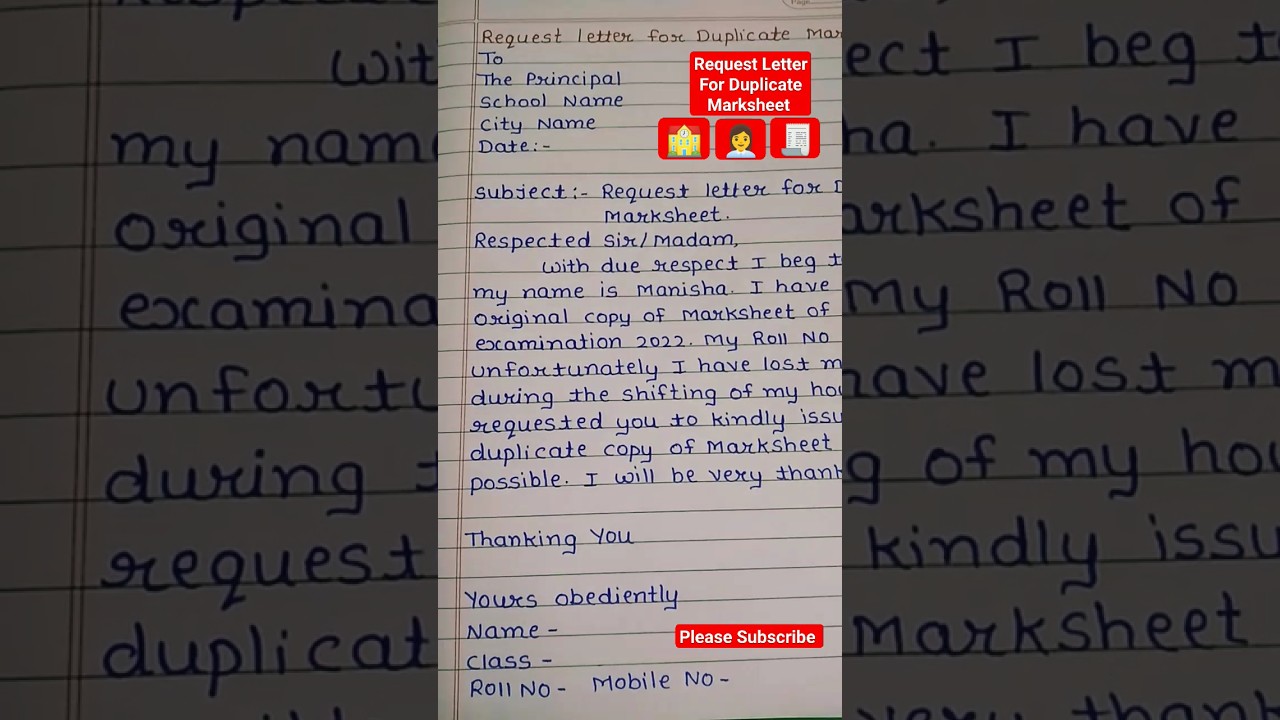 Request letter for Duplicate Mar
To
The Principal
School Name
City Name
Date:-
Request Letter
For Duplicate
Marksheet
Subject:- Request letter for D
Marksheet.
Respected Sir/Madam,
With due respect I beg t
my name is Manisha. I have
original copy of Marksheet of
examination 2022. My Roll No
unfortunately I have lost m
during the shifting of my hou
requested you to kindly issu
duplicate copy of Marksheet
possible. I will be very thank
Thanking You
Yours obediently
Name -
Class -
Roll No - Mobile No -
Please Subscribe